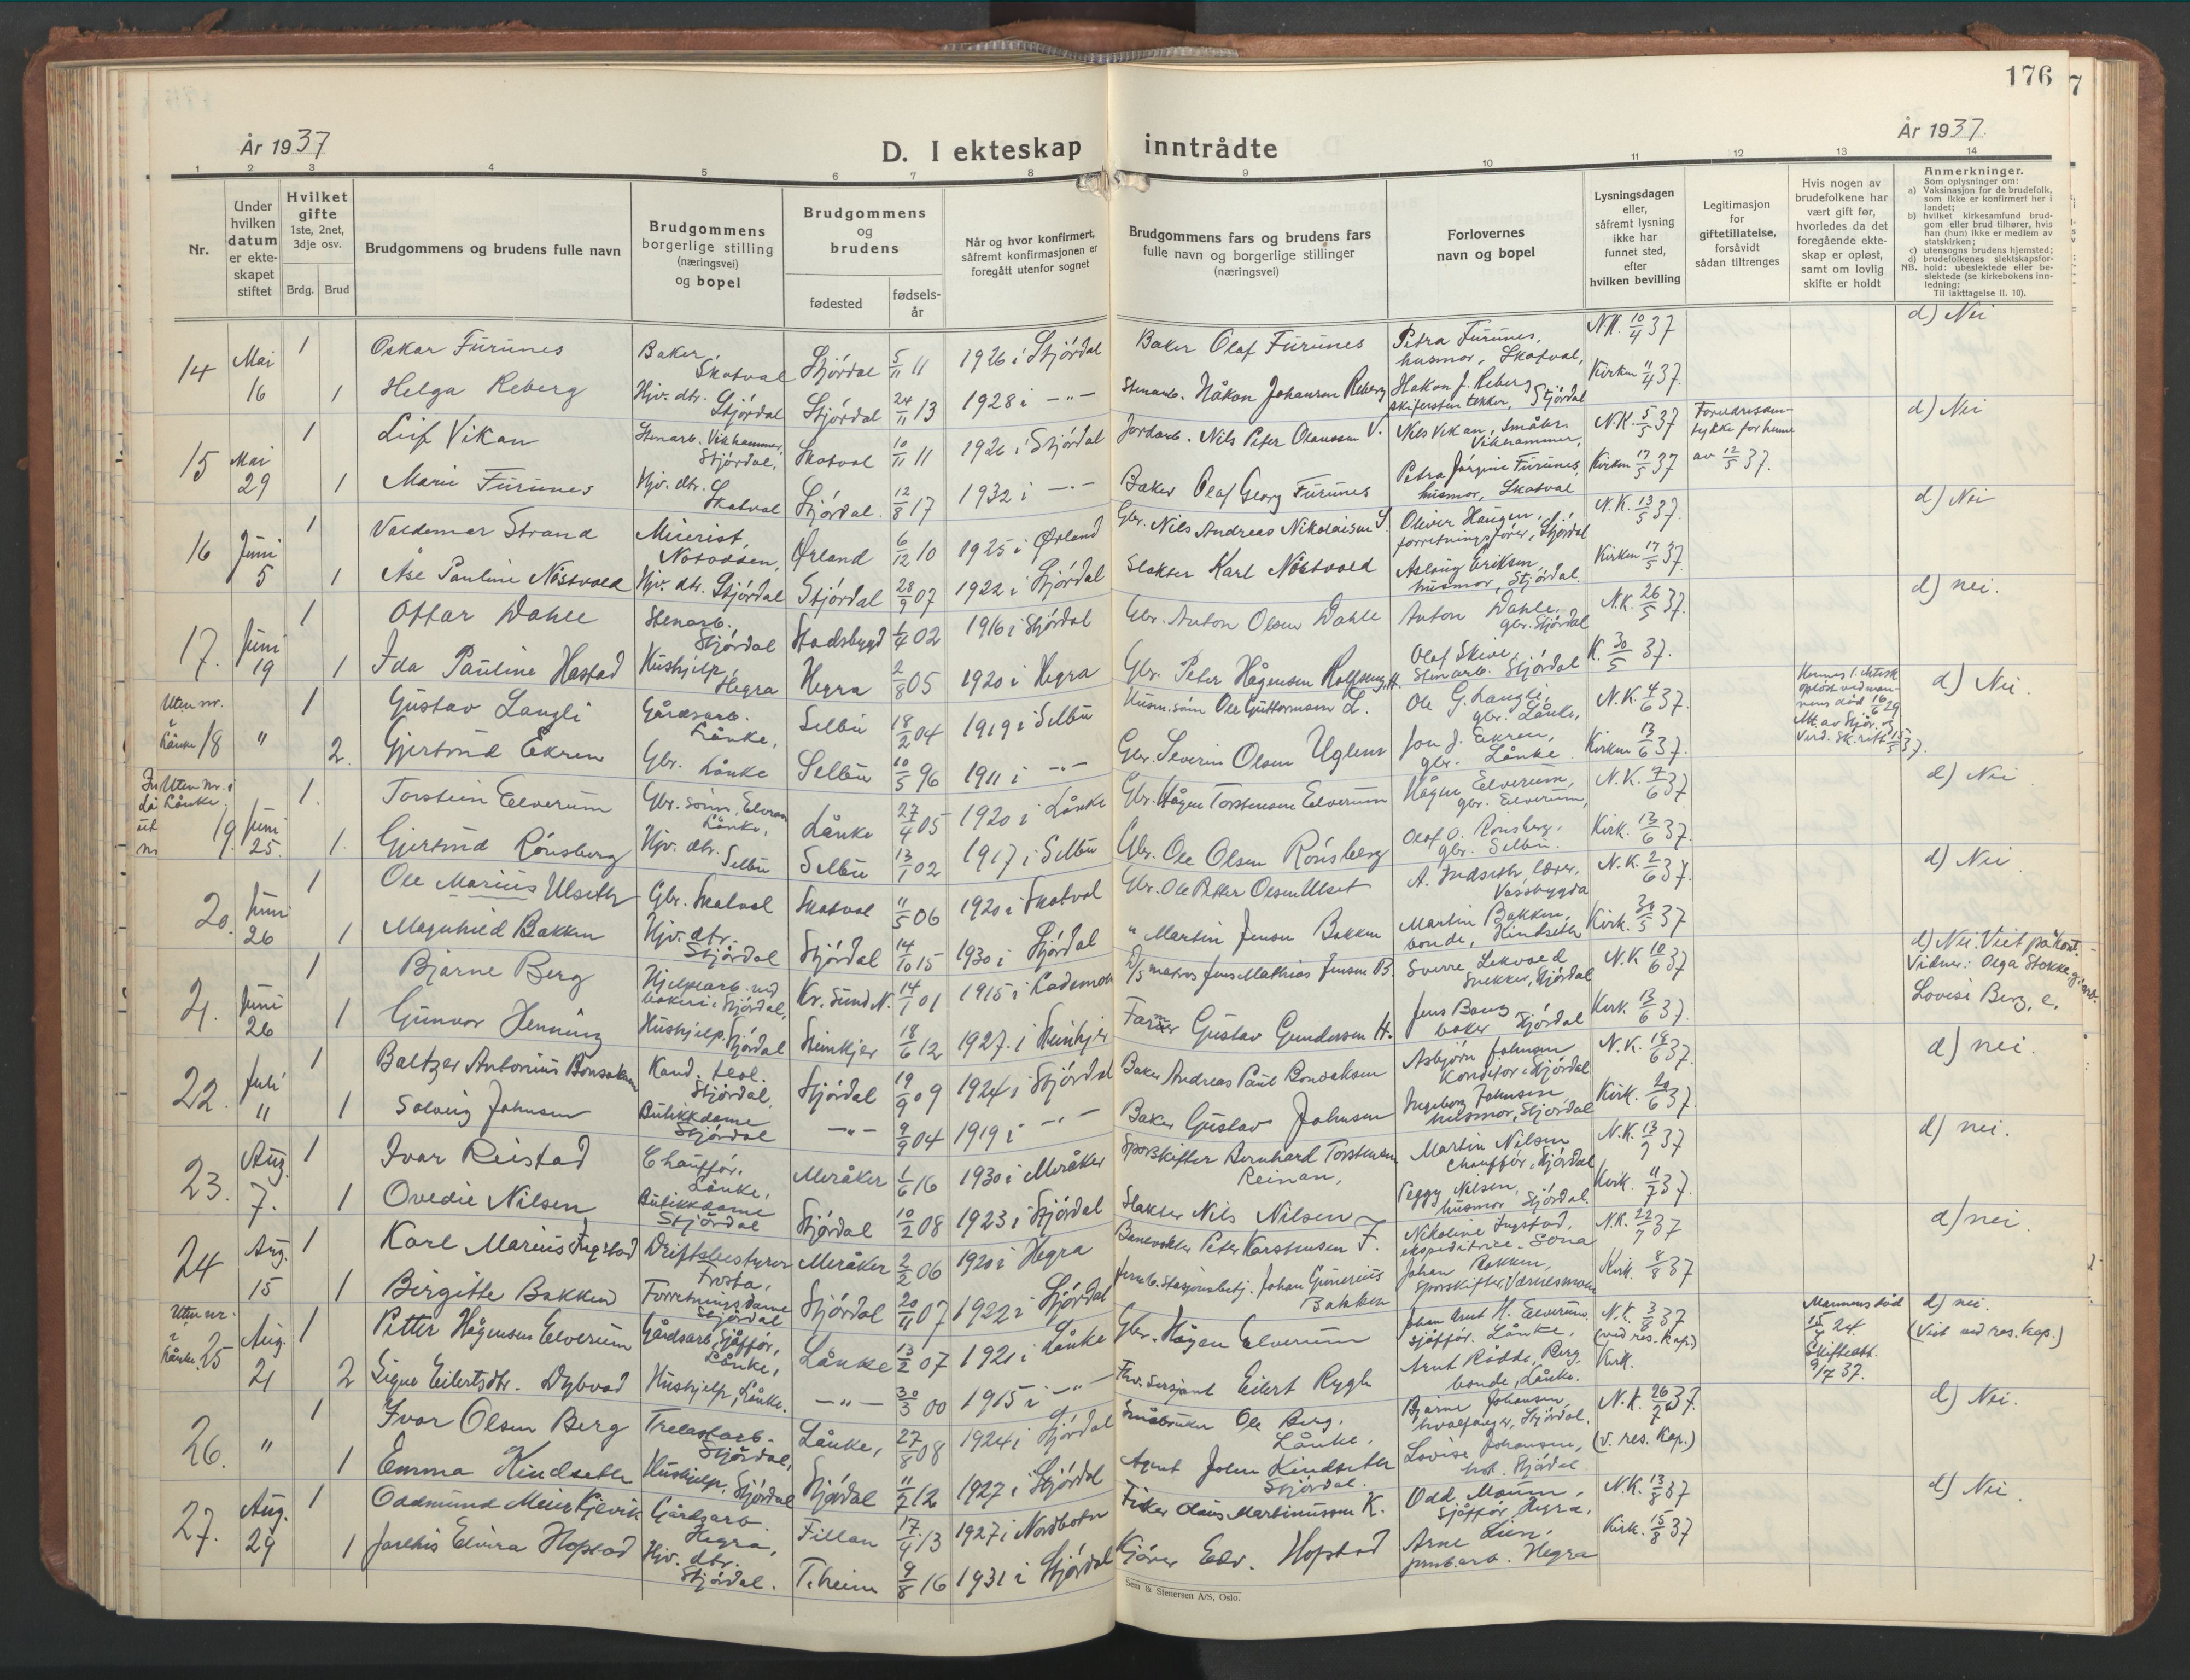 176
År 1937
D. I ekteskap inntrådte
År 1937.
1 2 3 4 5 6 7 8 9 10 11 12 13 14
Nr.
Under hvilken datum er ekteskapet stiftet
Hvilket gifte 1ste, 2net, 3dje osv.
Brdg. Brud
Brudgommens og brudens fulle navn
Brudgommens borgerlige stilling (næringsvei) og bopel
Brudgommens og brudens
fødested
fødselsår
Når og hvor konfirmert, såfremt konfirmasjonen er foregått utenfor sognet
Brudgommens fars og brudens fars fulle navn og borgerlige stillinger (næringsvei)
Forlovernes navn og bopel
Lysningsdagen eller, såfremt lysning ikke har funnet sted, efter hvilken bevilling
Legitimasjon for giftetillatelse, forsåvidt sådan tiltrenges
Hvis nogen av brudefolkene har vært gift før, hvorledes da det foregående ekteskap er opløst, samt om lovlig skifte er holdt
Anmerkninger.
Som oplysninger om:
a) Vaksinasjon for de brudefolk, som ikke er konfirmert her i landet;
b) hvilket kirkesamfund brudgom eller brud tilhører, hvis han (hun) ikke er medlem av statskirken;
c) utensogns brudens hjemsted;
d) brudefolkenes slektskapsforhold: ubeslektede eller beslektede (se kirkebokens innledning:
NB. Til iakttagelse II. 10).
14 Mai 16 1 Oskar Furunes Baker, Skatval Stjørdal 5/11 11 1926 i Stjørdal Baker Olaf Furunes Petra Furunes, husmor, Skatval, N.K. 10/4 37 d) Nei
1 Helga Reberg Hjv. dtr. Stjørdal Stjørdal 24/11 13 1928 i -"- Stenarb. Håkon Johansen Reberg Hakon J. Reberg skifersten tekker, Stjørdal Kirken 11/4 37.
15 Mai 29 1 Leif Vikan Stenarb. Vikhammer, Stjørdal, Skatval 10/11 11 1926 i Stjørdal Jordarb. Nils Peter Olaussen V. Nils Vikan, småbr. Vikhammer, N.K. 5/5 37 d) Nei
1 Marie Furunes Hjv. dtr. Skatval Stjørdal. 12/8 17 1932 i -"- Baker Olaf Georg Furunes Petra Jørgine Furunes, husmor, Skatval Kirken 17/5 37 av 12/5 37.
16 Juni 5 1 Valdemar Strand Meierist, Notodden, Ørland 6/12 10 1925 i Ørland Gbr. Nils Andreas Nikolaisen S. Oliver Haugen, forretningsfører, Stjørdal N.K. 13/5 37. d) Nei
1 Åse Pauline Nøstvold Hjv. dtr. Stjørdal Stjørdal 28/9 07 1922 i Stjørdal Slakter Karl Nøstvold Aslaug Eriksen, husmor, Stjørdal Kirken 17/5 37.
17. Juni 19 1 Ottar Dahle Stenarb. Stjørdal Stadsbygd 1/4 02 1916 i Stjørdal Gbr. Anton Olsen Dahle Anton Dahle, gbr. Stjørdal N.K. 26/5 37. d) nei.
1 Ida Pauline Hastad Hushjelp, Hegra Hegra 2/8 05 1920 i Hegra Gbr. Peter Hågensen Rolfseng H. Olaf Skive, Stenarb. Stjørdal K. 30/5 37.
Uten nr. i Lånke 18 " 1 Gustav Langli Gårdsarb. Lånke, Selbu 18/2 04 1919 i Selbu Husm. sønn Ole Guttormsen L. Ole G. Langli, gbr. Lånke, N.K. 4/6 37 d) Nei.
2. Gjertrud Ekren Gbr. Lånke Selbu 10/5 96 1911 i -"- Gbr. Severin Olsen Uglem Jon J. Ekren, gbr. Lånke Kirken 13/6 37.
Uten nr. i Lånke 19. Juni 25. 1. Torstein Eelverum Gbr. sønn, Lånke, Lånke 27/4 05 1920 i Lånke Gbr. Hågen Torstensen Eelverum Hågen Eelverum, gbr. Eelverum, N.K. 7/6 37 d) Nei
1. Gjertrud Rønsberg Hjv. dtr. Selbu Selbu 13/1 02 1917 i Selbu Gbr. Ole Olsen Rønsberg Olaf O. Rønsberg, gbr. Selbu. Kirk. 13/6 37.
20. Juni 26 1 Ole Marius Ulseth Gbr. Skatval Skatval 11/5 06 1920 i Skatval Gbr. Ole Petter Olsen Ulset A. Indseth, lærer, Vassbygda N.K. 2/6 37. d) Nei
1 Magnhild Bakken Hjv. dtr. Stjørdal Stjørdal 14/10 15 1930 i Stjørdal " Martin Jensen Bakken Martin Bakken, bonde, Kindseth Kirk. 30/5 37
21. Juni 26 1 Bjarne Berg Hjelpearb. ved bakeri i Stjørdal, Kr. sund N. 14/1 01 1915 i Lademoen D/S matros Jens Mathias Jensen B. Sverre Lekvold Snekker, Stjørdal N.K. 10/6 37 d) Nei. Viet på kont. Vidner: Olga Stokke Lovise Berg, e.
1 Gunvor Henning Hushjelp. Stjørdal Steinkjer 18/6 12 1927. i Steinkjer Farmer Gustav Gundersen H. Jens Berg baker Stjørdal Kirk 13/6 37.
22. Juli " 1 Baltzer Antonius Bonsaksen Kand. teol. Stjørdal. Stjørdal 19/9 09 1924 i Stjørdal Baker Andreas Paul Bonsaksen Asbjørn Johnsen Konditor i Stjørdal N.K. 18/6 37. d) nei.
1 Solveig Johnsen Butikkdame Stjørdal -"- 9/9 04 1919 i -"- Baker Gustav Johnsen Ingeborg Johnsen husmor, Stjørdal Kirk. 20/6 37.
23. Aug. 7. 1 Ivar Reistad Chauffør. Lånke, Meråker 1/6 16 1930 i Meråker Sporskifter Bernhard Torstensen Reinan, Martin Nilsen Chauffør, Stjørdal N.K. 13/7 37 d) nei.
1 Ovedie Nilsen Butikkdame Stjørdal Stjørdal 10/2 08 1923 i Stjørdal Slakter Nils Nilsen Peggy Nilsen, husmor Stjørdal. Kirk. 11/7 37.
24 Aug. 15 1 Karl Marius Fugstad Driftsbestyrer Frosta, Meråker 2/2 06 1920 i Hegra Banevokter Peter Karstensen F. Nikoline Fugstad, ekspeditrice. Sona N.K. 22/7 37 d) nei.
1 Birgitte Bakken Forretningsdame Stjørdal Stjørdal 20/11 07 1922 i Stjørdal Jernb. Stasjonsbetj. Johan Gunerius Bakken Johan Bakken, Sporskifter, Værnesmoen Kirk. 8/8 37
Uten nr. i Lånke. 25 Aug. 21 1 Petter Hågensen Eelverum Gårdsarb. Sjåffør, Lånke, Lånke 13/2 07 1921 i Lånke Gbr. Hågen Elverum Johan Arnt H. Eelverum, sjåffør. Lånke, N.K. 3/8 37 (ved res. kap.) Mannens død 15/4 24. Skifteatt. 9/7 37. d) nei. (Viet ved res. kap.)
2 Signe Eilertsdtr. Dybvad Hushjelp, Lånke. -"- 30/3 00 1915 i -"- Fhv. Sersjant Eilert Rygh Arnt Rødde, Berg, bonde, Lånke. Kirk.
26. " 1 Ivar Olsen Berg Trelastarb. Stjørdal, Lånke, 27/8 08 1924 i Stjørdal Småbruker Ole Berg, Lånke, Bjarne Johansen, hvalfanger, Stjørdal. N.K. 26/7 37. d) Nei.
1 Emma Kindseth Hushjelp, Stjørdal Stjørdal 11/2 12 1927 i Stjørdal Agent John Kindseth Stjørdal. Lovise Johansen, Stjørdal (v. res. kap.)
27. Aug. 29 1 Oddmund Meier Kjervik Gårdsarb. Hegra, Fillan 17/4 13 1927 i Nordbotn Fisker Olaus Martinussen K. Odd Moum, Sjåffør, Hegra, N.K. 13/8 37 d) Nei.
1 Elvira Hopstad Hjv. dtr. Stjørdal. T.heim 9/8 16 1931 i Stjørdal Kjører Edv. Hopstad Arne Lien, Hegra Kirk. 15/8 37
Sem & Stenersen A/S, Oslo.